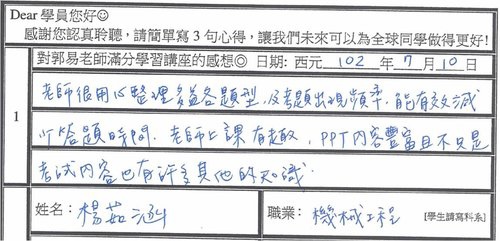 Dear 學員您好☺
感謝您認真聆聽，請簡單寫 3 句心得，讓我們未來可以為全球同學做得更好!
對郭易老師滿分學習講座的感想◎ 日期: 西元 102 年 7 月 10 日
1
老師很用心整理多益各題型，及考題出現頻率，能有效減
少答題時間．老師上課有趣，PPT內容豐富且不只是
考試內容也有許多其他的知識．
姓名： 楊茹涵 職業： 機械工程 [學生請寫科系]